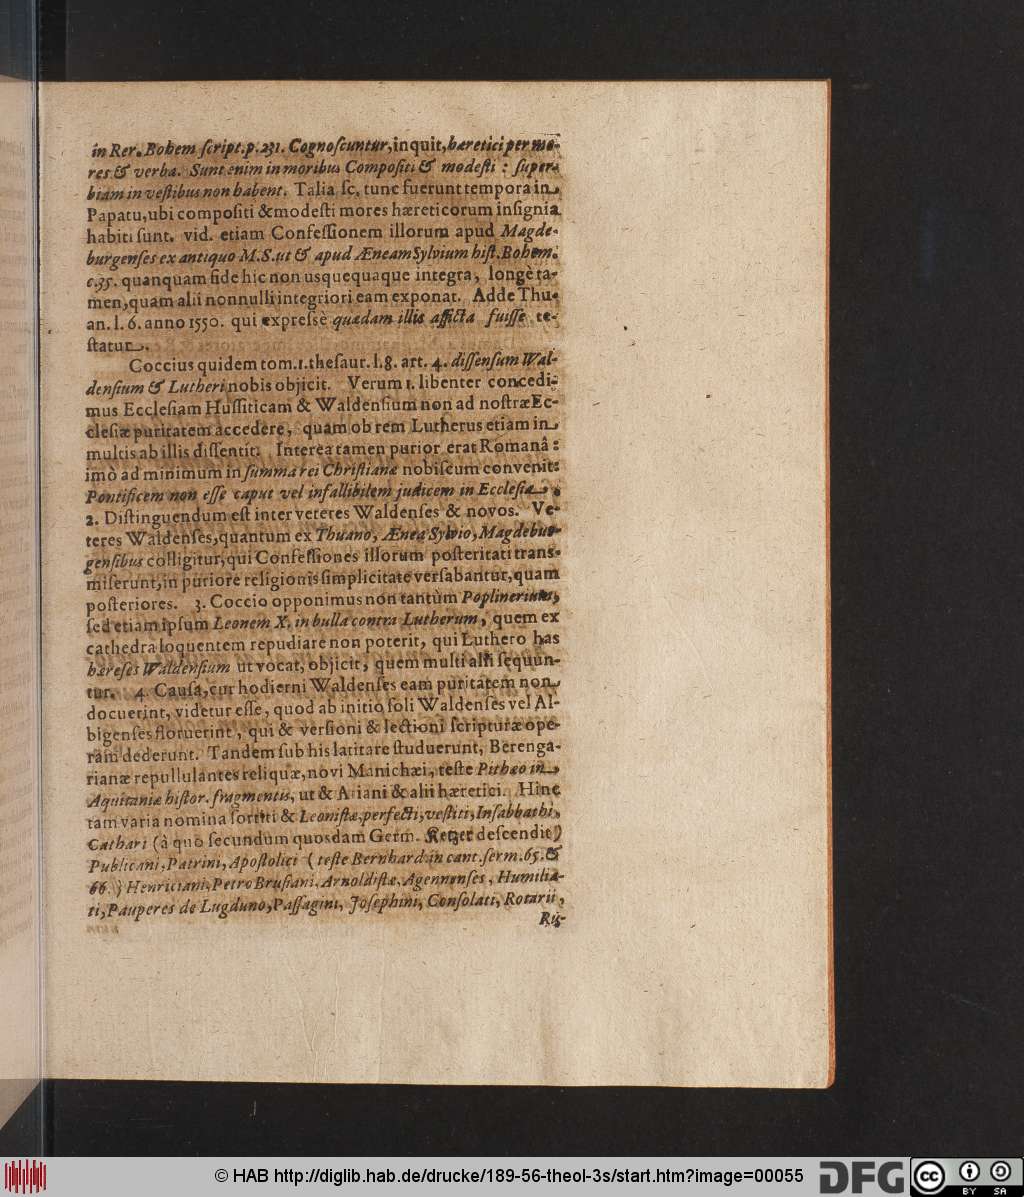 in Rer. Bohem ſcript. p. 231. Cognoſcuntur, inquit, hæretici per mo-
res & verba. Sunt enim in moribus Compoſiti & modeſti : ſuper-
biam in veſtibus non habent. Talia ſc. tunc fuerunt tempora in
Papatu, ubi compoſiti & modeſti mores hæreticorum inſignia
habiti ſunt. vid. etiam Confeſſionem illorum apud Magde-
burgenſes ex antiquo M.S. ut & apud ÆneamSylvium hiſt. Bohem.
c. 35. quanquam fide hic non usquequaque integra, longè ta-
men, quam alii nonnulli integriori eam exponat. Adde Thu-
an. l. 6. anno 1550. qui expreſsè quædam illis afficta fuiſſe te-
ſtatur.
Coccius quidem tom. 1. theſaur. l. 8. art. 4. diſſenſum Wal-
denſium & Lutheri nobis objicit. Verum 1. libenter concedi-
mus Eccleſiam Huſſiticam & Waldenſium non ad noſtræ Ec-
cleſiæ puritatem accedere, quam ob rem Lutherus etiam in
multis ab illis diſſentit: Interea tamen purior erat Romanâ:
imò ad minimum in ſumma rei Chriſtianæ nobiſcum convenit:
Pontificem non eſſe caput vel infallibilem judicem in Eccleſia.
2. Diſtinguendum eſt inter veteres Waldenſes & novos. Ve-
teres Waldenſes, quantum ex Thuano, Ænea Sylvio, Magdebur-
genſibus colligitur, qui Confeſſiones illorum poſteritati trans-
miſerunt, in puriore religionis ſimplicitate verſabantur, quam
poſteriores. 3. Coccio opponimus non tantùm Poplinerium,
ſed etiam ipſum Leonem X. in bulla contra Lutherum, quem ex
cathedra loquentem repudiare non poterit, qui Luthero has
hæreſes Waldenſium ut vocat, objicit, quem multi alii ſequun-
tur. 4. Cauſa, cur hodierni Waldenſes eam puritatem non
docuerint, videtur eſſe, quod ab initio ſoli Waldenſes vel Al-
bigenſes floruerint, qui & verſioni & lectioni ſcripturæ ope-
ram dederunt. Tandem ſub his latitare ſtuduerunt, Berenga-
rianæ repullulantes reliquæ, novi Manichæi, teſte Pithæo in
Aquitaniæ hiſtor. fragmentis, ut & Ariani & alii hæretici. Hinc
tam varia nomina ſortiti & Leoniſtæ, perfecti, veſtiti, Inſabbathi,
Cathari (à quo ſecundum quosdam Germ. Ketzer deſcendit)
Publicani, Patrini, Apoſtolici (teſte Bernhard. in cant. ſerm. 65. &
66.) Henriciani, Petro Bruſiani, Arnoldiſtæ, Agennenſes, Humilia-
ti, Pauperes de Lugduno, Paſſagini, Joſephini, Conſolati, Rotarii,
Ru-
© HAB http://diglib.hab.de/drucke/189-56-theol-3s/start.htm?image=00055
DFG
cc BY SA